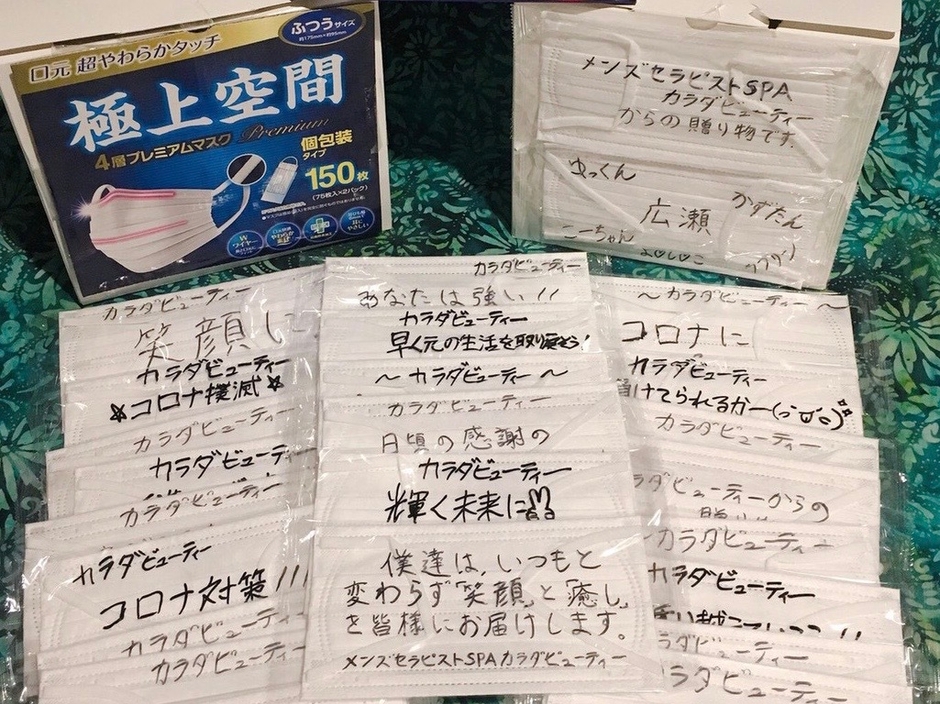 口元 超やわらかタッチ
ふつうサイズ
約175mm×約95mm
極上空間
4層プレミアムマスク Premium
個包装
タイプ
150枚
(75枚入×2パック)
Wワイヤー
メンズセラピストSPA
カラダビューティー
からの贈り物です.
ゆっくん
かずたん
広瀬
こーちゃん
カラダビューティー
笑顔に
カラダビューティー
☆コロナ撲滅☆
カラダビューティー
カラダビューティー
カラダビューティー
カラダビューティー
コロナ対策!!!
カラダビューティー
カラダビューティー
カラダビューティー
あなたは強い!!
カラダビューティー
早く元の生活を取り戻そう!
~カラダビューティー~
カラダビューティー
日頃の感謝の
カラダビューティー
輝く未来に
僕達は、いつもと
変わらず「笑顔」と「癒し」
を皆様にお届けします。
メンズセラピストSPAカラダビューティー
~カラダビューティー~
コロナに
カラダビューティー
負けてられるかー
カラダビューティー
カラダビューティーからの
カラダビューティー
カラダビューティー
カラダビューティー
カラダビューティー